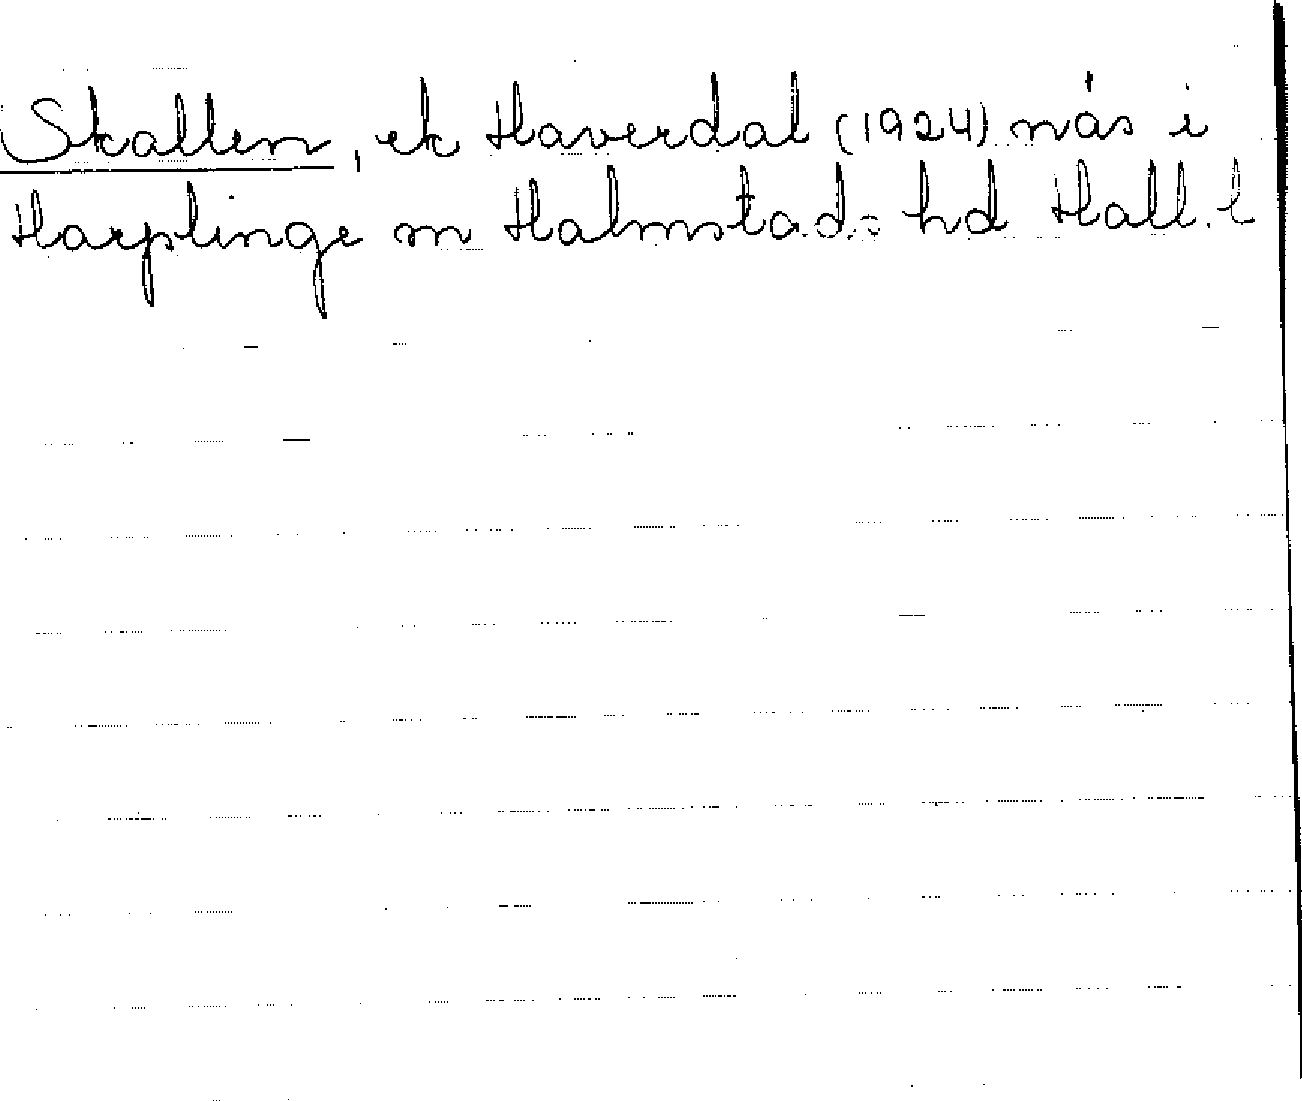 Skallen, ek Haverdal (1924) nås i
Harplinge sn Halmstads hd Hall. l